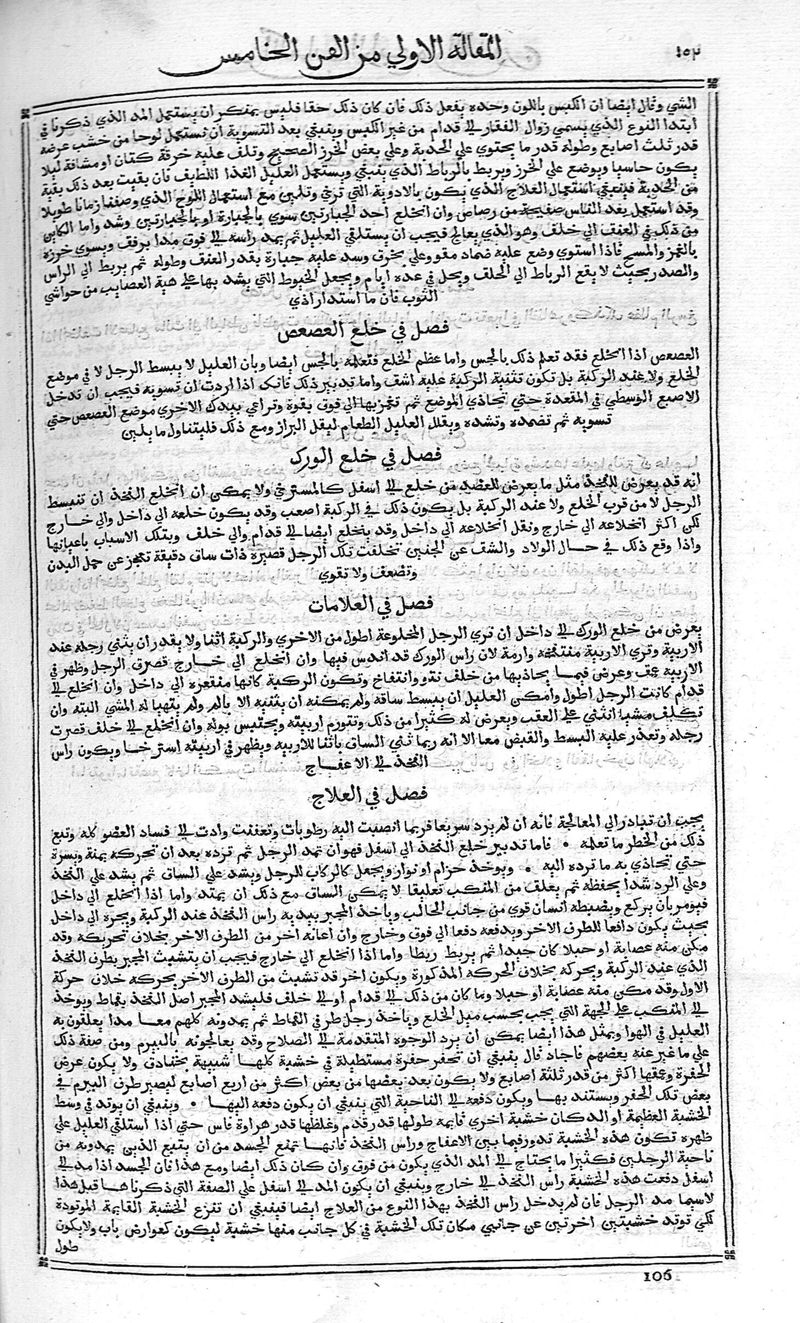 ١٥٢
المقالة الاولي من الفن الخامس
الشي وقال ايضا ان الكبس باللون وحده يفعل ذلك فان كان ذلك حقا فليس بمنكر ان يستعمل المد الذي ذكرنا في
ابتدا النوع الذي يسمي زوال الفقار الي قدام من غير الكبس وينبغي بعد التسوية ان تستعمل لوحا من خشب عرضه
قدر ثلث اصابع وطوله قدر ما يحتوي علي الحدبة وعلي بعض الخرز الصحيح وتلف عليه خرقة كتان او مشاقة ليلا
يكون جاسيا ويوضع علي الخرز ويربط بالرباط الذي ينبغي ويستعمل العليل الغذا اللطيف فان بقيت بعد ذلك بقية
من الحدبة فينبغي استعمال العلاج الذي يكون بالادوية التي ترخي وتلين مع استعمال اللوح الذي وصفنا زمانا طويلا
وقد استعمل بعد الناس صفيحة من رصاص وان انخلع احد الجبارتين سوي بالجبارة او بالجبارتين وشد واما الكاين
من ذلك في العنف الي خلف وهو الذي يعالج فيجب ان يستلقي العليل ثم يمد راسه الي فوق مدا برفف ويسوي خرزه
بالغمز والمسح فاذا استوي وضع عليه ضماد مقو وعلي بخرف وسد عليه جبارة بقدر العنف وطوله ثم يربط الي الراس
والصدر بحيث لا يقع الرباط الي الحلف ويحل في عدة ايام ويجعل الخيوط التي يشد بها علي هية العصايب من حواشي
الثوب فان ما استدار اذي
فصل في خلع العصعص
العصعص اذا انخلع فقد تعلم ذلك بالجس واما عظم الخلع فتعلمه بالجس ايضا وبان العليل لا يبسط الرجل لا في موضع
الخلع ولا عند الركبة بل تكون تثنية الركبة عليه اشف واما تدبير ذلك فانك اذا اردت ان تسويه فيجب ان تدخل
الاصبع الوسطي في المقعدة حتي تحاذي الموضع ثم تغمز بها الي فوق بقوة وتراعي بيدك الاخري موضع العصعص حتي
تسويه ثم تضمده وتشده ويقلل العليل الطعام ليقل البراز ومع ذلك فليتناول ما يلين
فصل في خلع الورك
انه قد يعرض للفخذ مثل ما يعرض للعضد من خلع الي اسفل كالمسترخي ولا يمكن ان انخلع الفخذ ان تنبسط
الرجل لا من قرب الخلع ولا عند الركبة بل يكون ذلك في الركبة اصعب وقد يكون خلعه الي داخل والي خارج
لكن اكثر انخلاعه الي خارج ونقل انخلاعه الي داخل وقد ينخلع ايضا الي قدام والي خلف وبتلك الاسباب باعيانها
واذا وقع ذلك في حال الولاد والشف عن الجنين تخلفت تلك الرجل قصيرة ذات ساق دقيقة تعجز عن حمل البدن
وتضعف ولا تقوي
فصل في العلامات
يعرض من خلع الورك الي داخل ان تري الرجل المخلوعة اطول من الاخري والركبة اثنا ولا يقدر ان يثني رجله عند
الاربية وتري الاربية منتفخة وارمة لان راس الورك قد اندس فيها وان انخلع الي خارج قصرت الرجل وظهر في
الاربية عمف وعرض فيما يحاذيها من خلف نتو وانتفاخ وتكون الركبة كانها منقعرة الي داخل وان انخلع الي
قدام كانت الرجل اطول وامكن العليل ان يبسط ساقه ولم يمكنه ان يثنيه الا بالم ولم يتهيا له المشي البته وان
تكلف مشيا انثني علي العقب ويعرض له كثيرا من ذلك وتتورم اربيته ويحتبس بوله وان انخلع الي خلف قصرت
رجله وتعذر عليه البسط والقبض معا الا انه ربما ثني الساق باثنا للاربية ويظهر في اربيته استرخا ويكون راس
الفخذ الي الاعفاج
فصل في العلاج
يجب ان تبادر الي المعالجة فانه ان لم يرد سريعا فربما انصبت اليه رطوبات وتعفنت وادت الي فساد العضو كله وتبع
ذلك من الخطر ما تعلمه ٠ فاما تدبير خلع الفخذ الي اسفل فهو ان تمد الرجل ثم ترده بعد ان تحركه يمنة ويسرة
حتي تحاذي به ما ترده اليه ٠ ويوخذ حزام او نوار ويجعل كالركاب للرجل ويشد علي الساق ثم يشد علي الفخذ
وعلي الرد شدا يحفظه ثم يعلف من المنكب تعليقا لا يمكن الساق مع ذلك ان يمتد واما اذا انخلع الي داخل
فيومر بان يركع ويضبطه انسان قوي من جانب الحالب وياخذ المجبر بيديه راس الفخذ عند الركبة ويجره الي داخل
بحيث يكون دافعا للطرف الاخر ويدفعه دفعا الي فوق وخارج وان اعانه اخر من الطرف الاخر بخلاف تحريكه وقد
مكن منه عصابة او حبلا كان جيدا ثم يربط ربطا واما اذا انخلع الي خارج فيجب ان يتشبث المجبر بطرف الفخذ
الذي عند الركبة ويحركه بخلاف الحركه المذكورة ويكون اخر قد تشبث من الطرف الاخر يحركه خلاف حركة
الاول وقد مكن منه عصابة او حبلا وما كان من ذلك الي قدام او الي خلف فليشد المجبر اصل الفخذ بقماط ويوخذ
الي المنكب علي الجهة التي يجب بحسب ميل الخلع وياخذ رجل طرفي القماط ثم يمدونه كلهم معا مدا يعلقون به
العليل في الهوا وبمثل هذا ايضا يمكن ان يرد الوجوه المتقدمة الي الصلاح وقد يعالجونه بالبيرم ومن صفة ذلك
علي ما عبر عنه بعضهم فاجاد قال ينبغي ان تحفر حفرة مستطيلة في خشبة كلها شبيهة بخنادق ولا يكون عرض
الحفرة وعمقها اكثر من قدر ثلثة اصابع ولا يكون بعد بعضها من بعض اكثر من اربع اصابع ليصير طرف البيرم في
بعض تلك الحفر ويستند بها ويكون دفعه الي الناحية التي ينبغي ان يكون دفعه اليها ٠ وينبغي ان يوتد في وسط
الخشبة العظيمة او الدكان خشبة اخري قايمة طولها قدر قدم وغلظها قدر هراوة فاس حتي اذا استلقي العليل علي
ظهره تكون هذه الخشبة تدور فيما بين الاعفاج وراس الفخذ فانها تمنع الجسد من ان يتبع الذين يمدونه من
ناحية الرجلين فكثيرا ما يحتاج الي المد الذي يكون من فوق وان كان ذلك ايضا ومع هذا فان الجسد اذا مد الي
اسفل دفعت هذه الخشبة راس الفخذ الي خارج وينبغي ان يكون المد الي اسفل علي الصفة التي ذكرناها قبل هذا
لاسيما مد الرجل فان لم يدخل راس الفخذ بهذا النوع من العلاج ايضا فينبغي ان تنزع الخشبة القايمة الموتودة
لكي توتد خشبتين اخرتين عن جانبي مكان تلك الخشبة في كل جانب منها خشبة ليكون كعوارض باب ولا يكون
طول
106